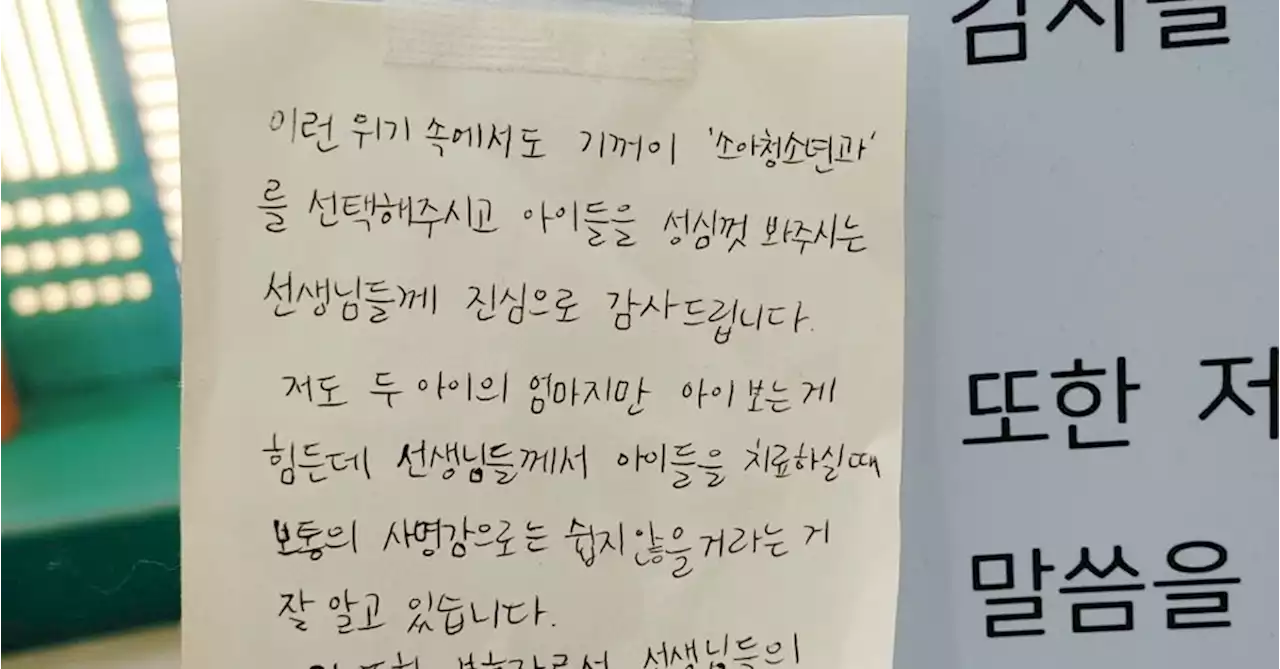 이런 위기 속에서도 기꺼이 '소아청소년과'
를 선택해주시고 아이들을 성심껏 봐주시는
선생님들께 진심으로 감사드립니다.
저도 두 아이의 엄마지만 아이 보는게
힘든데 선생님들께서 아이들을 치료하실때
보통의 사명감으로는 쉽지않을거라는 거
잘 알고 있습니다.
선생님들의
감사를
또한 저
말씀을